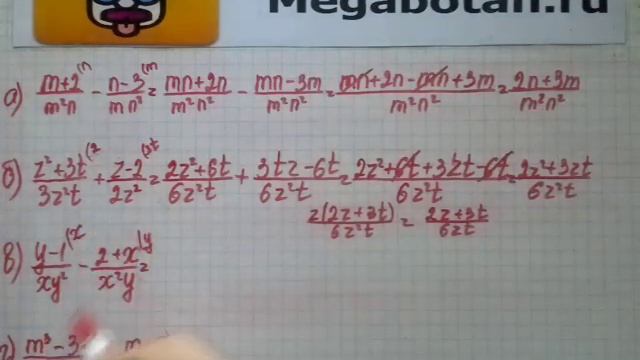 Megabotan.ru
а) (m+2)/(m²n) ⁽ⁿ - (n-3)/(mn²) ⁽ᵐ = (mn+2n)/(m²n²) - (mn-3m)/(m²n²) = (mn+2n-mn+3m)/(m²n²) = (2n+3m)/(m²n²)
б) (z²+3t)/(3z²t) ⁽² + (z-2)/(2z²) ⁽³ᵗ = (2z²+6t)/(6z²t) + (3tz-6t)/(6z²t) = (2z²+6t+3zt-6t)/(6z²t) = (2z²+3zt)/(6z²t)
z(2z+3t)/(6z²t) = (2z+3t)/(6zt)
в) (y-1)/(xy²) ⁽ˣ - (2+x)/(x²y) ⁽ʸ =
г) m³-3 m